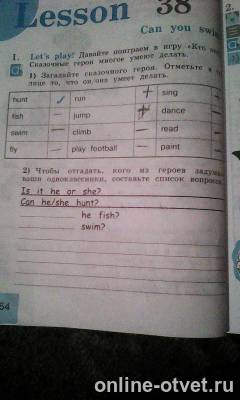 Lesson 38
2.
Can you swim
1. Let's play! Давайте поиграем в игру «Кто
Сказочные герои многое умеют делать.
1) Загадайте сказочного героя. Отметьте в
лице то, что он/она умеет делать.
hunt ✓ run + sing
fish – jump + dance
swim – climb – read –
fly – play football – paint –
2) Чтобы отгадать, кого из героев
ваши одноклассники, составьте список
Is it he or she?
Can he/she hunt?
he fish?
swim?
54
online-otvet.ru